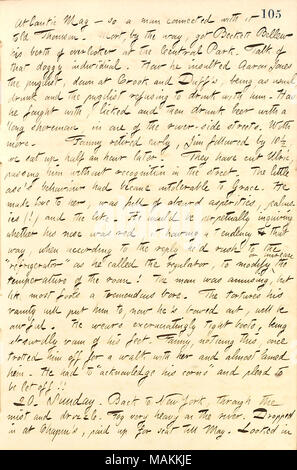 105
Atlantic Mag — so a man connected with it
told Thomson. Mort, by the way, got Beckett Bellew
his berth of overlooker at the Central Park. Talk of
that doggy individual. How he insulted
the pugilist, down at Crook and Duff's, being as usual,
drunk and the pugilist refusing to drink with him. How
he fought with, licked and then drank beer with a
'long shoreman, in one of the river-side streets. With
more. Fanny retired early, Jim followed by 10½
we sat up half an hour later. They have cut
passing him without recognition in the street. The little
ass's behaviour had became intolerable to Grace. He
made love to her, was full of absurd
(!) and the like. He would be perpetually inquiring
whether his nose was red — having a tendency that
way, when according to the reply he'd rush to the
"refrigerator" as he called the regulator, to modify or increase the
temperature of the room! The man was amusing, but
like most fools a tremendous bore. The tortures his
vanity will put him to, now he is bowed out, will be
awful. He wears excruciatingly tight boots, being
absurdly vain of his feet. Fanny, noticing this, once
trotted him off for a walk with her and almost lamed
him. He had to acknowledge his corns and plead to
be let off!!
20. Sunday. Back to New York, through the
mist and drizzle. Fog very heavy on the river. Dropped
in at Chapin's, paid up for seat till May. Looked in